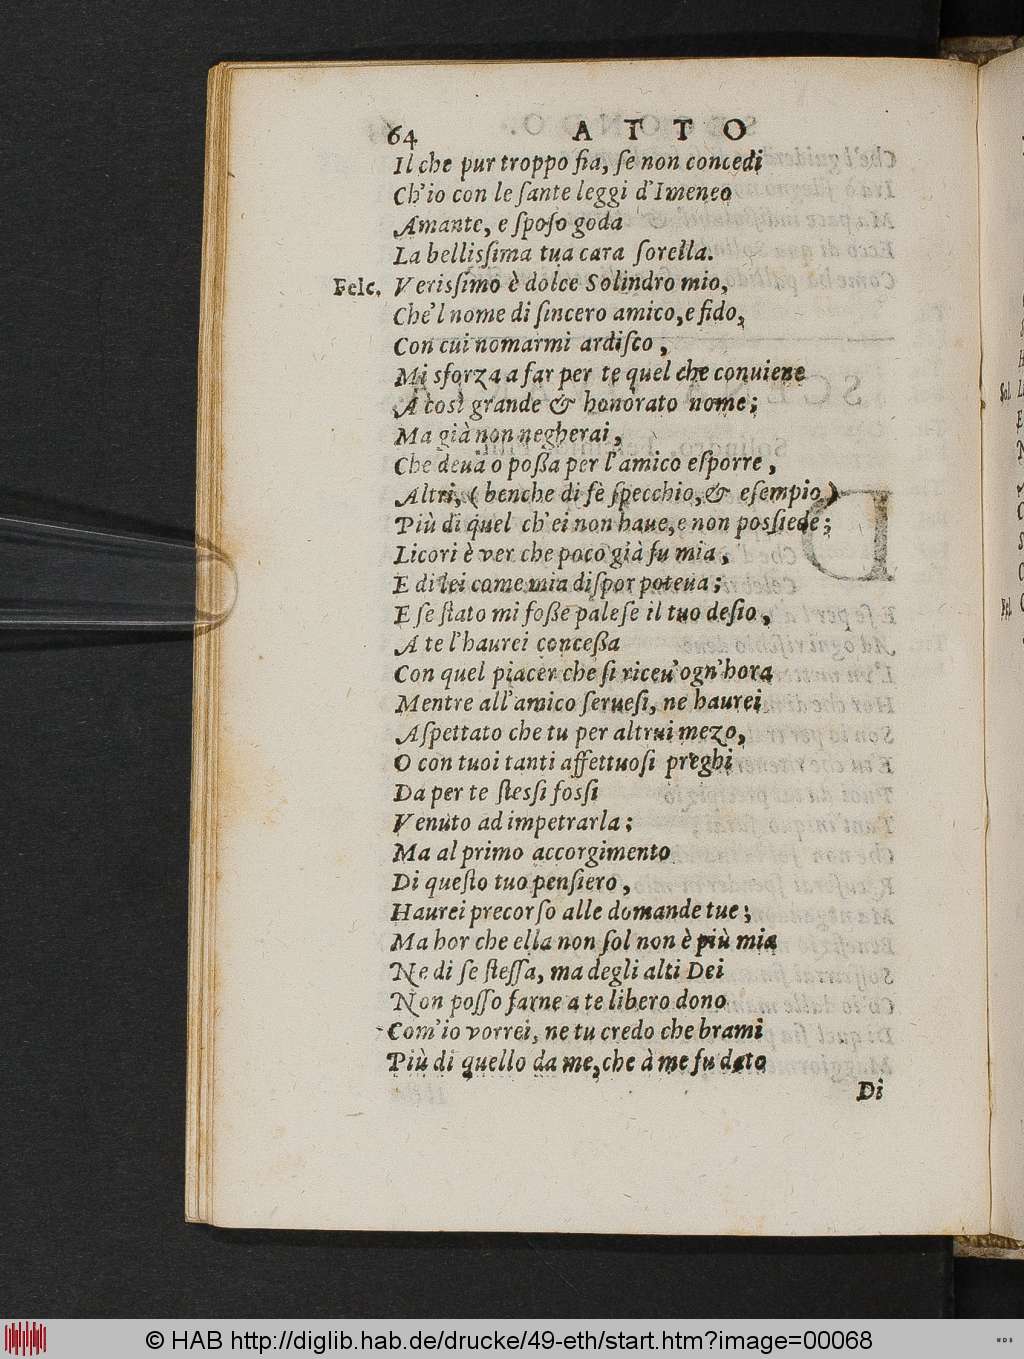 64 ATTO
Il che pur troppo fia, ſe non concedi
Ch'io con le ſante leggi d'Imeneo
Amante, e ſpoſo goda
La belliſsima tua cara ſorella.
Felc. Veriſsimo è dolce Solindro mio,
Che'l nome di ſincero amico, e fido,
Con cui nomarmi ardiſco,
Mi sforza a far per te quel che conuiene
A così grande & honorato nome;
Ma già non negherai,
Che deua o poßa per l'amico eſporre,
Altri, (benche di fè ſpecchio, & eſempio)
Più di quel ch'ei non haue, e non poſsiede;
Licori è ver che poco già fu mia,
E di lei come mia diſpor poteua;
E ſe ſtato mi foße paleſe il tuo deſio,
A te l'haurei conceßa
Con quel piacer che ſi riceu' ogn'hora
Mentre all'amico ſerueſi, ne haurei
Aſpettato che tu per altrui mezo,
O con tuoi tanti affettuoſi preghi
Da per te ſteſsi foſsi
Venuto ad impetrarla;
Ma al primo accorgimento
Di queſto tuo penſiero,
Haurei precorſo alle domande tue;
Ma hor che ella non ſol non è più mia
Ne di ſe ſteſſa, ma degli alti Dei
Non poſſo farne a te libero dono
Com'io vorrei, ne tu credo che brami
Più di quello da me, che à me fu dato
Di
© HAB http://diglib.hab.de/drucke/49-eth/start.htm?image=00068